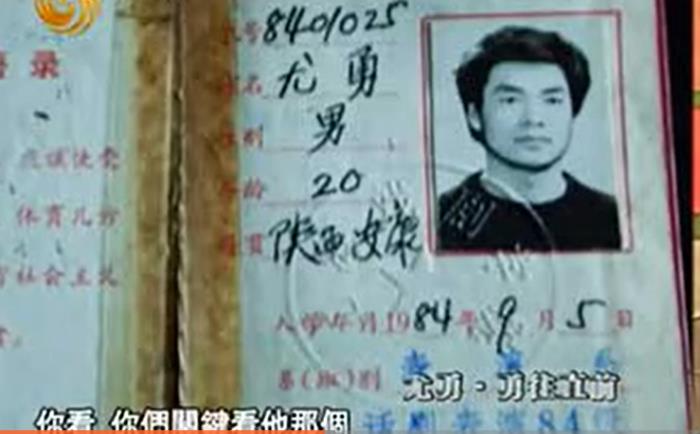 录
应该使受
体育几方
社会主义
号 8401025
名 尤勇
性别 男
年龄 20
籍贯 陕西安康
入学年月 1984年9月5日
系(班)别 表演
尤勇·勇往直前
84
你看 你個關鍵看他那個